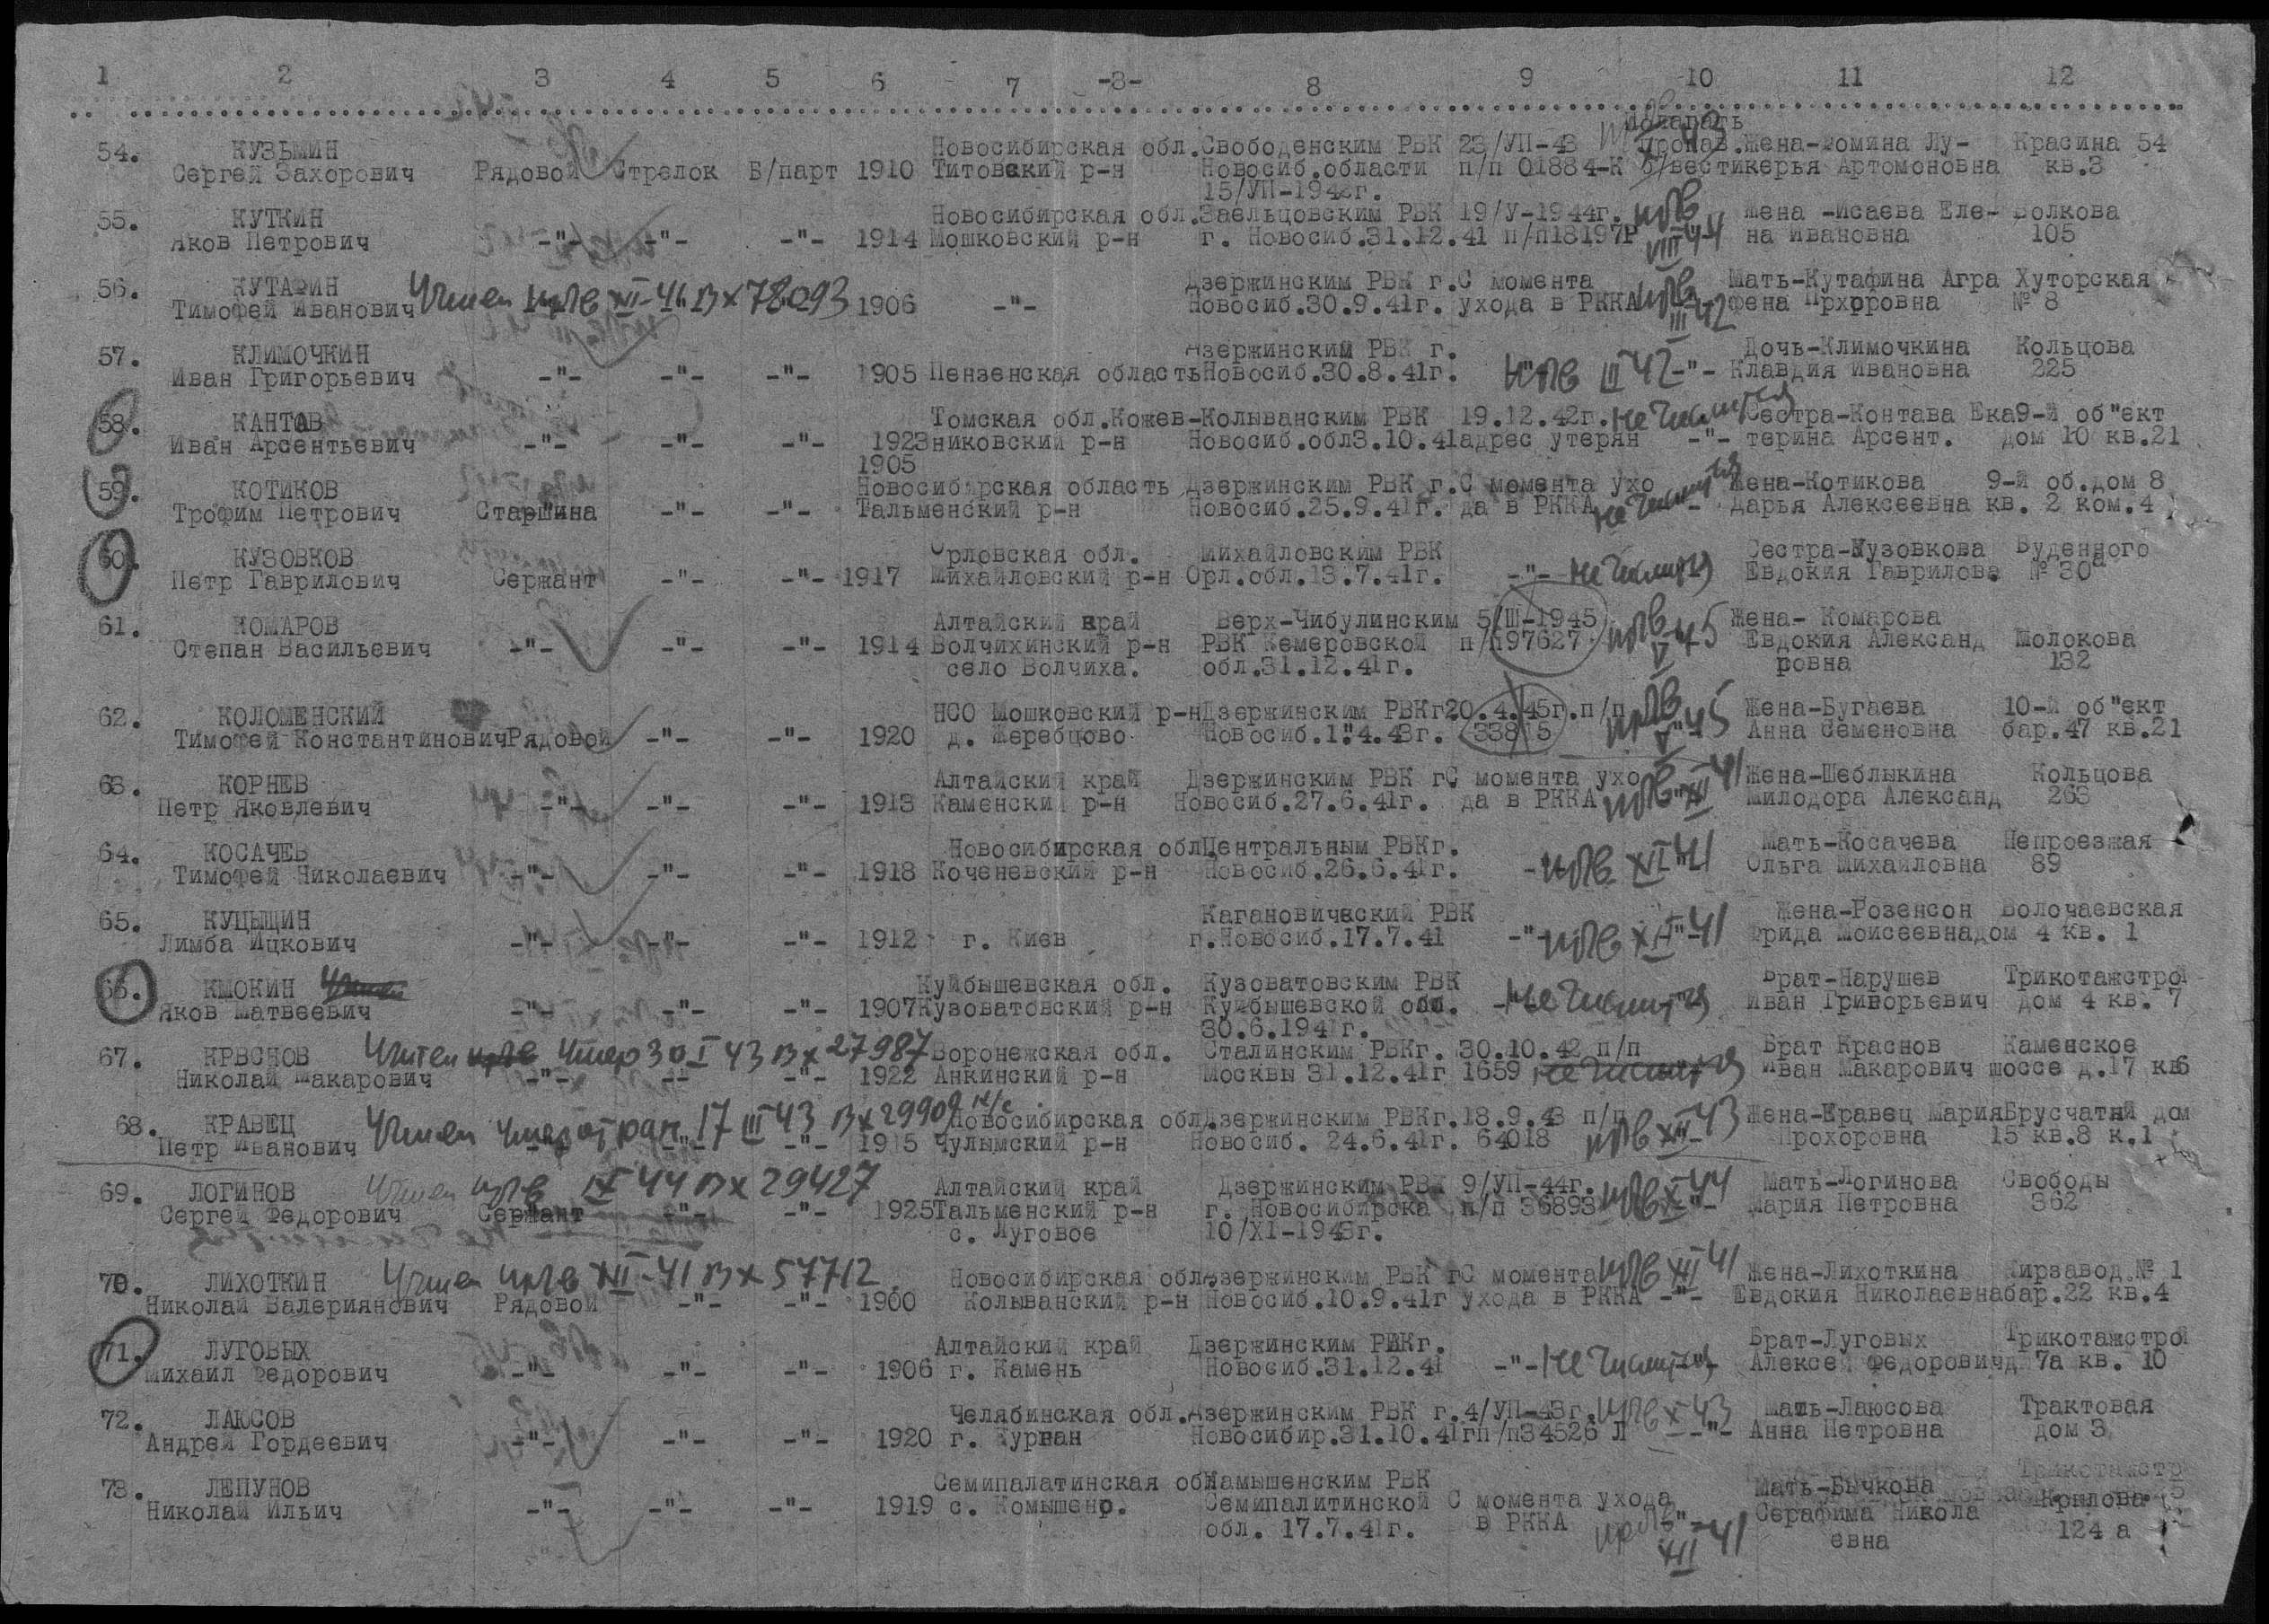 1 2 3 4 5 6 7 -3- 8 9 10 11 12
54. КУЗЬМИН Новосибирская обл. Свободенским РВК 23/УП-43 Жена-Фомина Лу- Красина 54
Сергей Захорович Рядовой Стрелок Б/парт 1910 Титовский р-н Новосиб.области п/п 01884-К б/вести керья Артомоновна кв.3
15/УП-1942г.
55. КУТКИН Новосибирская обл. Заельцовским РВК 19/У-1944г. Жена -Исаева Еле- Волкова
Яков Петрович -"- -"- -"- 1914 Мошковский р-н г. Новосиб.31.12.41 п/п18197Р VIII 44 на Ивановна 105
56. КУТАФИН Дзержинским РВК г. С момента Мать-Кутафина Агра Хуторская
Тимофей Иванович Учтен XII-41 вх 78093 1906 -"- Новосиб.30.9.41г. ухода в РККА III 42 фена Прхоровна № 8
57. КЛИМОЧКИН Дзержинский РВК г. Дочь-Климочкина Кольцова
Иван Григорьевич -"- -"- -"- 1905 Пензенская область Новосиб.30.8.41г. III 42 -"- Клавдия Ивановна 225
58. КАНТОВ Томская обл.Кожев- Колыванским РВК 19.12.42г. не числится Сестра-Контава Ека 9-й об"ект
Иван Арсентьевич -"- -"- -"- 1923 никовский р-н Новосиб.обл3.10.41 адрес утерян -"- терина Арсент. дом 10 кв.21
1905
59. КОТИКОВ Новосибирская область Дзержинским РВК г. С момента ухо Жена-Котикова 9-й об.дом 8
Трофим Петрович Старшина -"- -"- Тальменский р-н Новосиб.25.9.41г. да в РККА не числится Дарья Алексеевна кв. 2 ком.4
60. КУЗОВКОВ Орловская обл. Михайловским РВК Сестра-Кузовкова Буденного
Петр Гаврилович Сержант -"- -"- 1917 Михайловский р-н Орл.обл.13.7.41г. -"- не числится Евдокия Гаврилова № 30а
61. КОМАРОВ Алтайский край Верх-Чибулинским 5/Ш-1945 Жена- Комарова
Степан Васильевич -"- -"- -"- 1914 Волчихинский р-н РВК Кемеровской п/п97627 V 45 Евдокия Александ Шолокова
село Волчиха. обл.31.12.41г. ровна 132
62. КОЛОМЕНСКИЙ НСО Мошковский р-н Дзержинским РВКг 20.4.45г.п/п Жена-Бугаева 10-й об"ект
Тимофей Константинович Рядовой -"- -"- 1920 д. Жеребцово Новосиб.1"4.43г. 33815 V 45 Анна Семеновна бар.47 кв.21
63. КОРНЕВ Алтайский край Дзержинским РВК г С момента ухо Жена-Шеблыкина Кольцова
Петр Яковлевич -"- -"- -"- 1913 Каменский р-н Новосиб.27.6.41г. да в РККА XII 41 Милодора Александ 263
64. КОСАЧЕВ Новосибирская обл Центральным РВКг. Мать-Косачева Непроезжая
Тимофей Николаевич -"- -"- -"- 1918 Коченевский р-н Новосиб.26.6.41г. XII 41 Ольга Михайловна 89
65. КУЦЫЩИН Кагановический РВК Жена-Розенсон Волочаевская
Лимба Ицкович -"- -"- -"- 1912 г. Киев г.Новосиб.17.7.41 -"- XII-41 Фрида Моисеевна дом 4 кв. 1
66. КМОКИН Куйбышевская обл. Кузоватовским РВК Брат-Нарушев Трикотажстрой
Яков Матвеевич -"- -"- -"- 1907 Кузоватовский р-н Куйбышевской обл. не числится Иван Григорьевич дом 4 кв. 7
30.6.1941г.
67. КРВСНОВ Учтен умер 30 I 43 вх 27987 Воронежская обл. Сталинским РВКг. 30.10.42 п/п Брат Краснов Каменское
Николай Макарович -"- -"- -"- 1922 Анкинский р-н Москвы 31.12.41г 1659 не числится Иван Макарович шоссе д.17 кв6
68. КРАВЕЦ Учтен умер от ран 17 III 43 вх 29909 Новосибирская обл Дзержинским РВКг. 18.9.43 п/п Жена-Кравец Мария Брусчатый дом
Петр Иванович -"- -"- -"- 1915 Чулымский р-н Новосиб. 24.6.41г. 64018 XII-43 Прохоровна 15 кв.8 к.1
69. ЛОГИНОВ Учтен IX 44 вх 29427 Алтайский край Дзержинским РВК 9/УП-44г. Мать-Логинова Свободы
Сергей Федорович Сержант -"- -"- 1925 Тальменский р-н г. Новосибирска п/п 36893 X 44 -"- Мария Петровна 362
с. Луговое 10/XI-1943г.
70. ЛИХОТКИН Учтен XII-41 вх 57712 Новосибирская обл. Дзержинским РВК г С момента XII 41 Жена-Лихоткина Кирзавод № 1
Николай Валериянович Рядовой -"- -"- 1900 Колыванский р-н Новосиб.10.9.41г ухода в РККА -"- Евдокия Николаевна бар.22 кв.4
71. ЛУГОВЫХ Алтайский край Дзержинским РВКг. Брат-Луговых Трикотажстрой
Михаил Федорович -"- -"- -"- 1906 г. Камень Новосиб.31.12.41 -"- не числится Алексей Федорович д 7а кв. 10
72. ЛАЮСОВ Челябинская обл. Дзержинским РВК г. 4/УП-43г. X 43 Мать-Лаюсова Трактовая
Андрей Гордеевич -"- -"- -"- 1920 г. Курган Новосибир.31.10.41г п/п34526 Л -"- Анна Петровна дом 3
73. ЛЕПУНОВ Семипалатинская обл Камышенским РВК Мать-Бычкова Крылова
Николай Ильич -"- -"- -"- 1919 с. Комышенр. Семипалитинской С момента ухода Серафима Никола 124 а
обл. 17.7.41г. в РККА -"- XII 41 евна